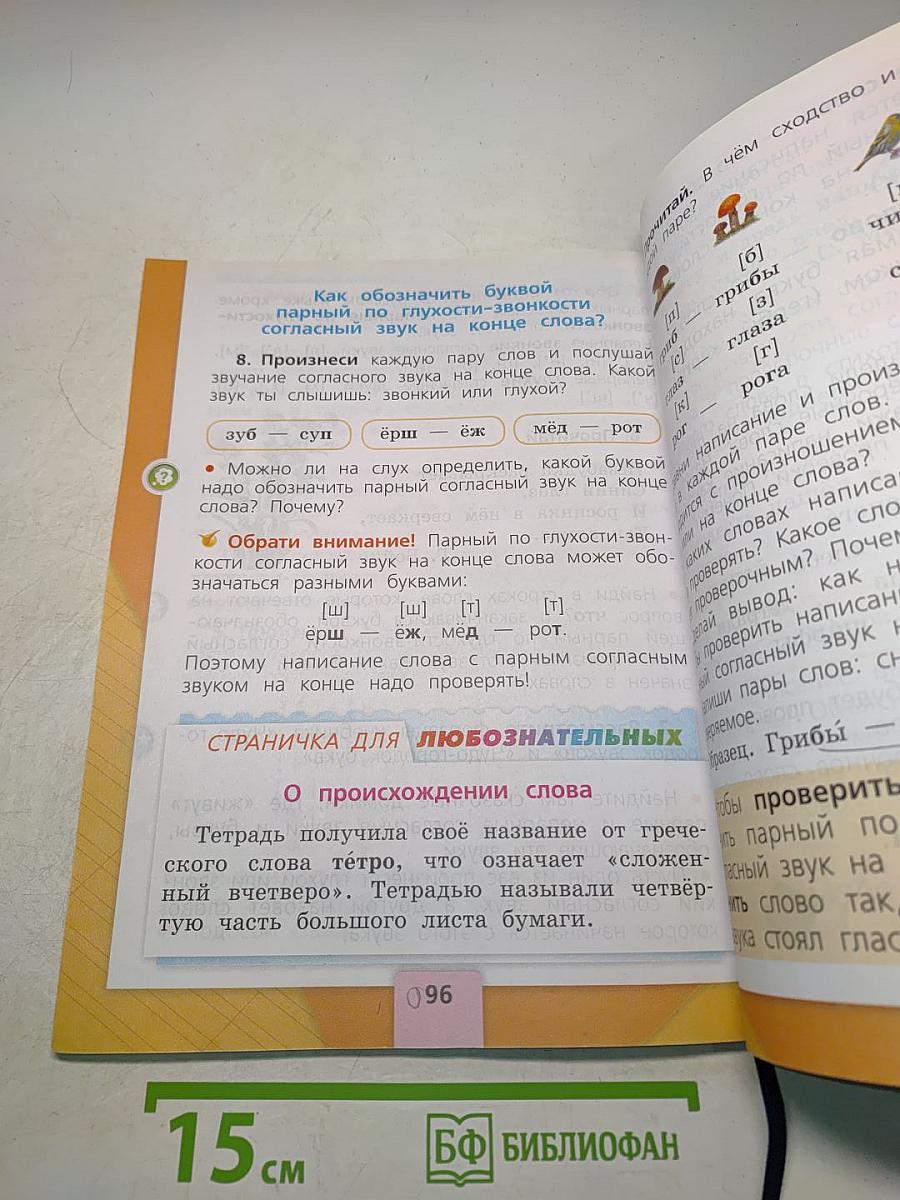 Как обозначить буквой
парный по глухости-звонкости
согласный звук на конце слова?
8. Произнеси каждую пару слов и послушай
звучание согласного звука на конце слова. Какой
звук ты слышишь: звонкий или глухой?
зуб — суп ёрш — ёж мёд — рот
• Можно ли на слух определить, какой буквой
надо обозначить парный согласный звук на конце
слова? Почему?
Обрати внимание! Парный по глухости-звон-
кости согласный звук на конце слова может обо-
значаться разными буквами:
[ш] [ш] [т] [т]
ёрш — ёж, мёд — рот.
Поэтому написание слова с парным согласным
звуком на конце надо проверять!
СТРАНИЧКА ДЛЯ ЛЮБОЗНАТЕЛЬНЫХ
О происхождении слова
Тетрадь получила своё название от грече-
ского слова те́тро, что означает «сложен-
ный вчетверо». Тетрадью называли четвёр-
тую часть большого листа бумаги.
96
В чём сходство и
паре?
[п] [б]
— грибы
[с] [з]
— глаза
[к] [г]
рог — рога
написание и произ
в каждой паре слов.
с произношением
на конце слова?
словах написа
проверять? Какое сло
проверочным? Почем
вывод: как н
проверить написан
согласный звук н
пары слов: сн
Грибы́ —
проверить
парный по
звук на
слово так,
стоял глас
15 см
БФ БИБЛИОФАН